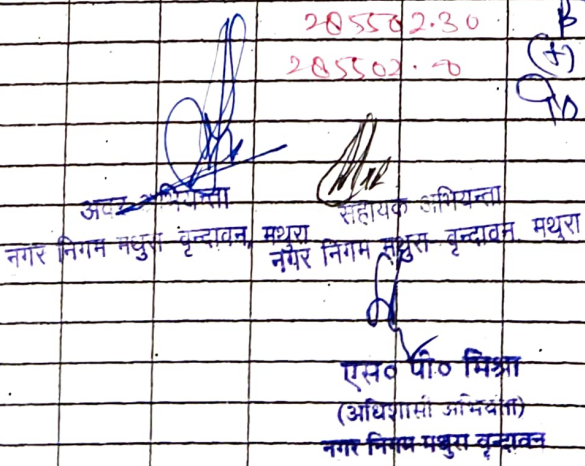 285502.30
285502.0
अवर अभियन्ता
सहायक अभियन्ता
नगर निगम मथुरा वृन्दावन, मथुरा
नगर निगम मथुरा वृन्दावन मथुरा
एस० पी० मिश्रा
(अधिशासी अभियंता)
नगर निगम मथुरा वृन्दावन